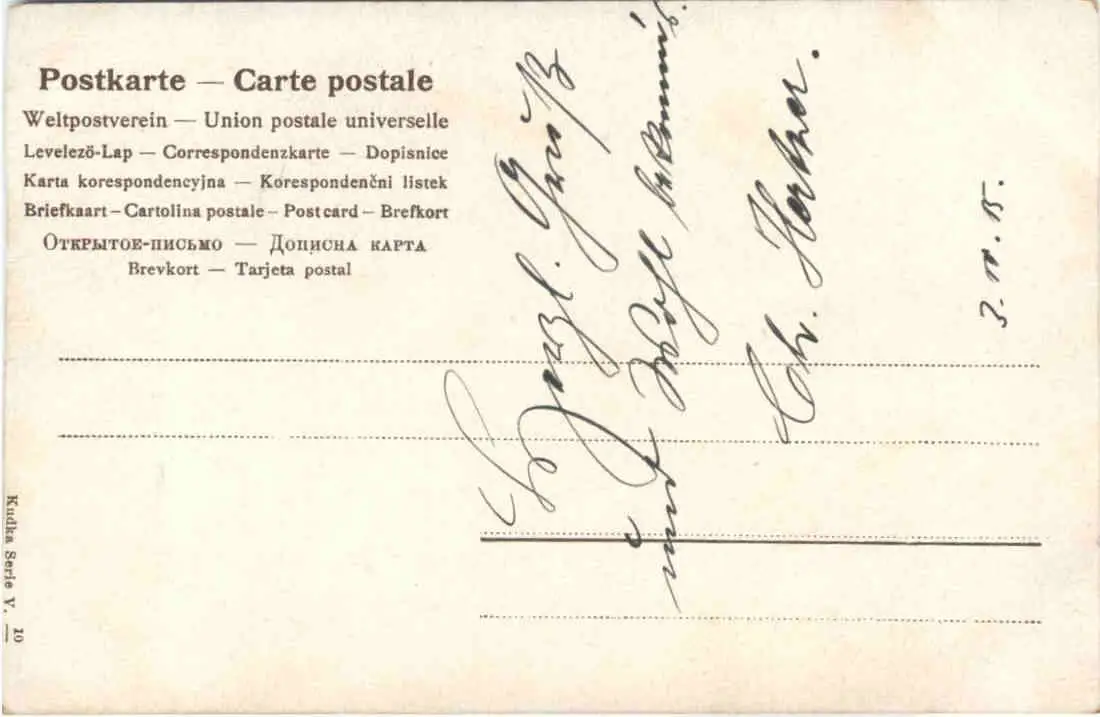 Postkarte — Carte postale
Weltpostverein — Union postale universelle
Levelező-Lap — Correspondenzkarte — Dopisnice
Karta korespondencyjna — Korespondenčni listek
Briefkaart – Cartolina postale – Post card – Brefkort
Открытое-письмо — Дописна карта
Brevkort — Tarjeta postal
Herzl. Gruß
und Wohl bekomm's.
Chr.
Kudka Serie V. — 10